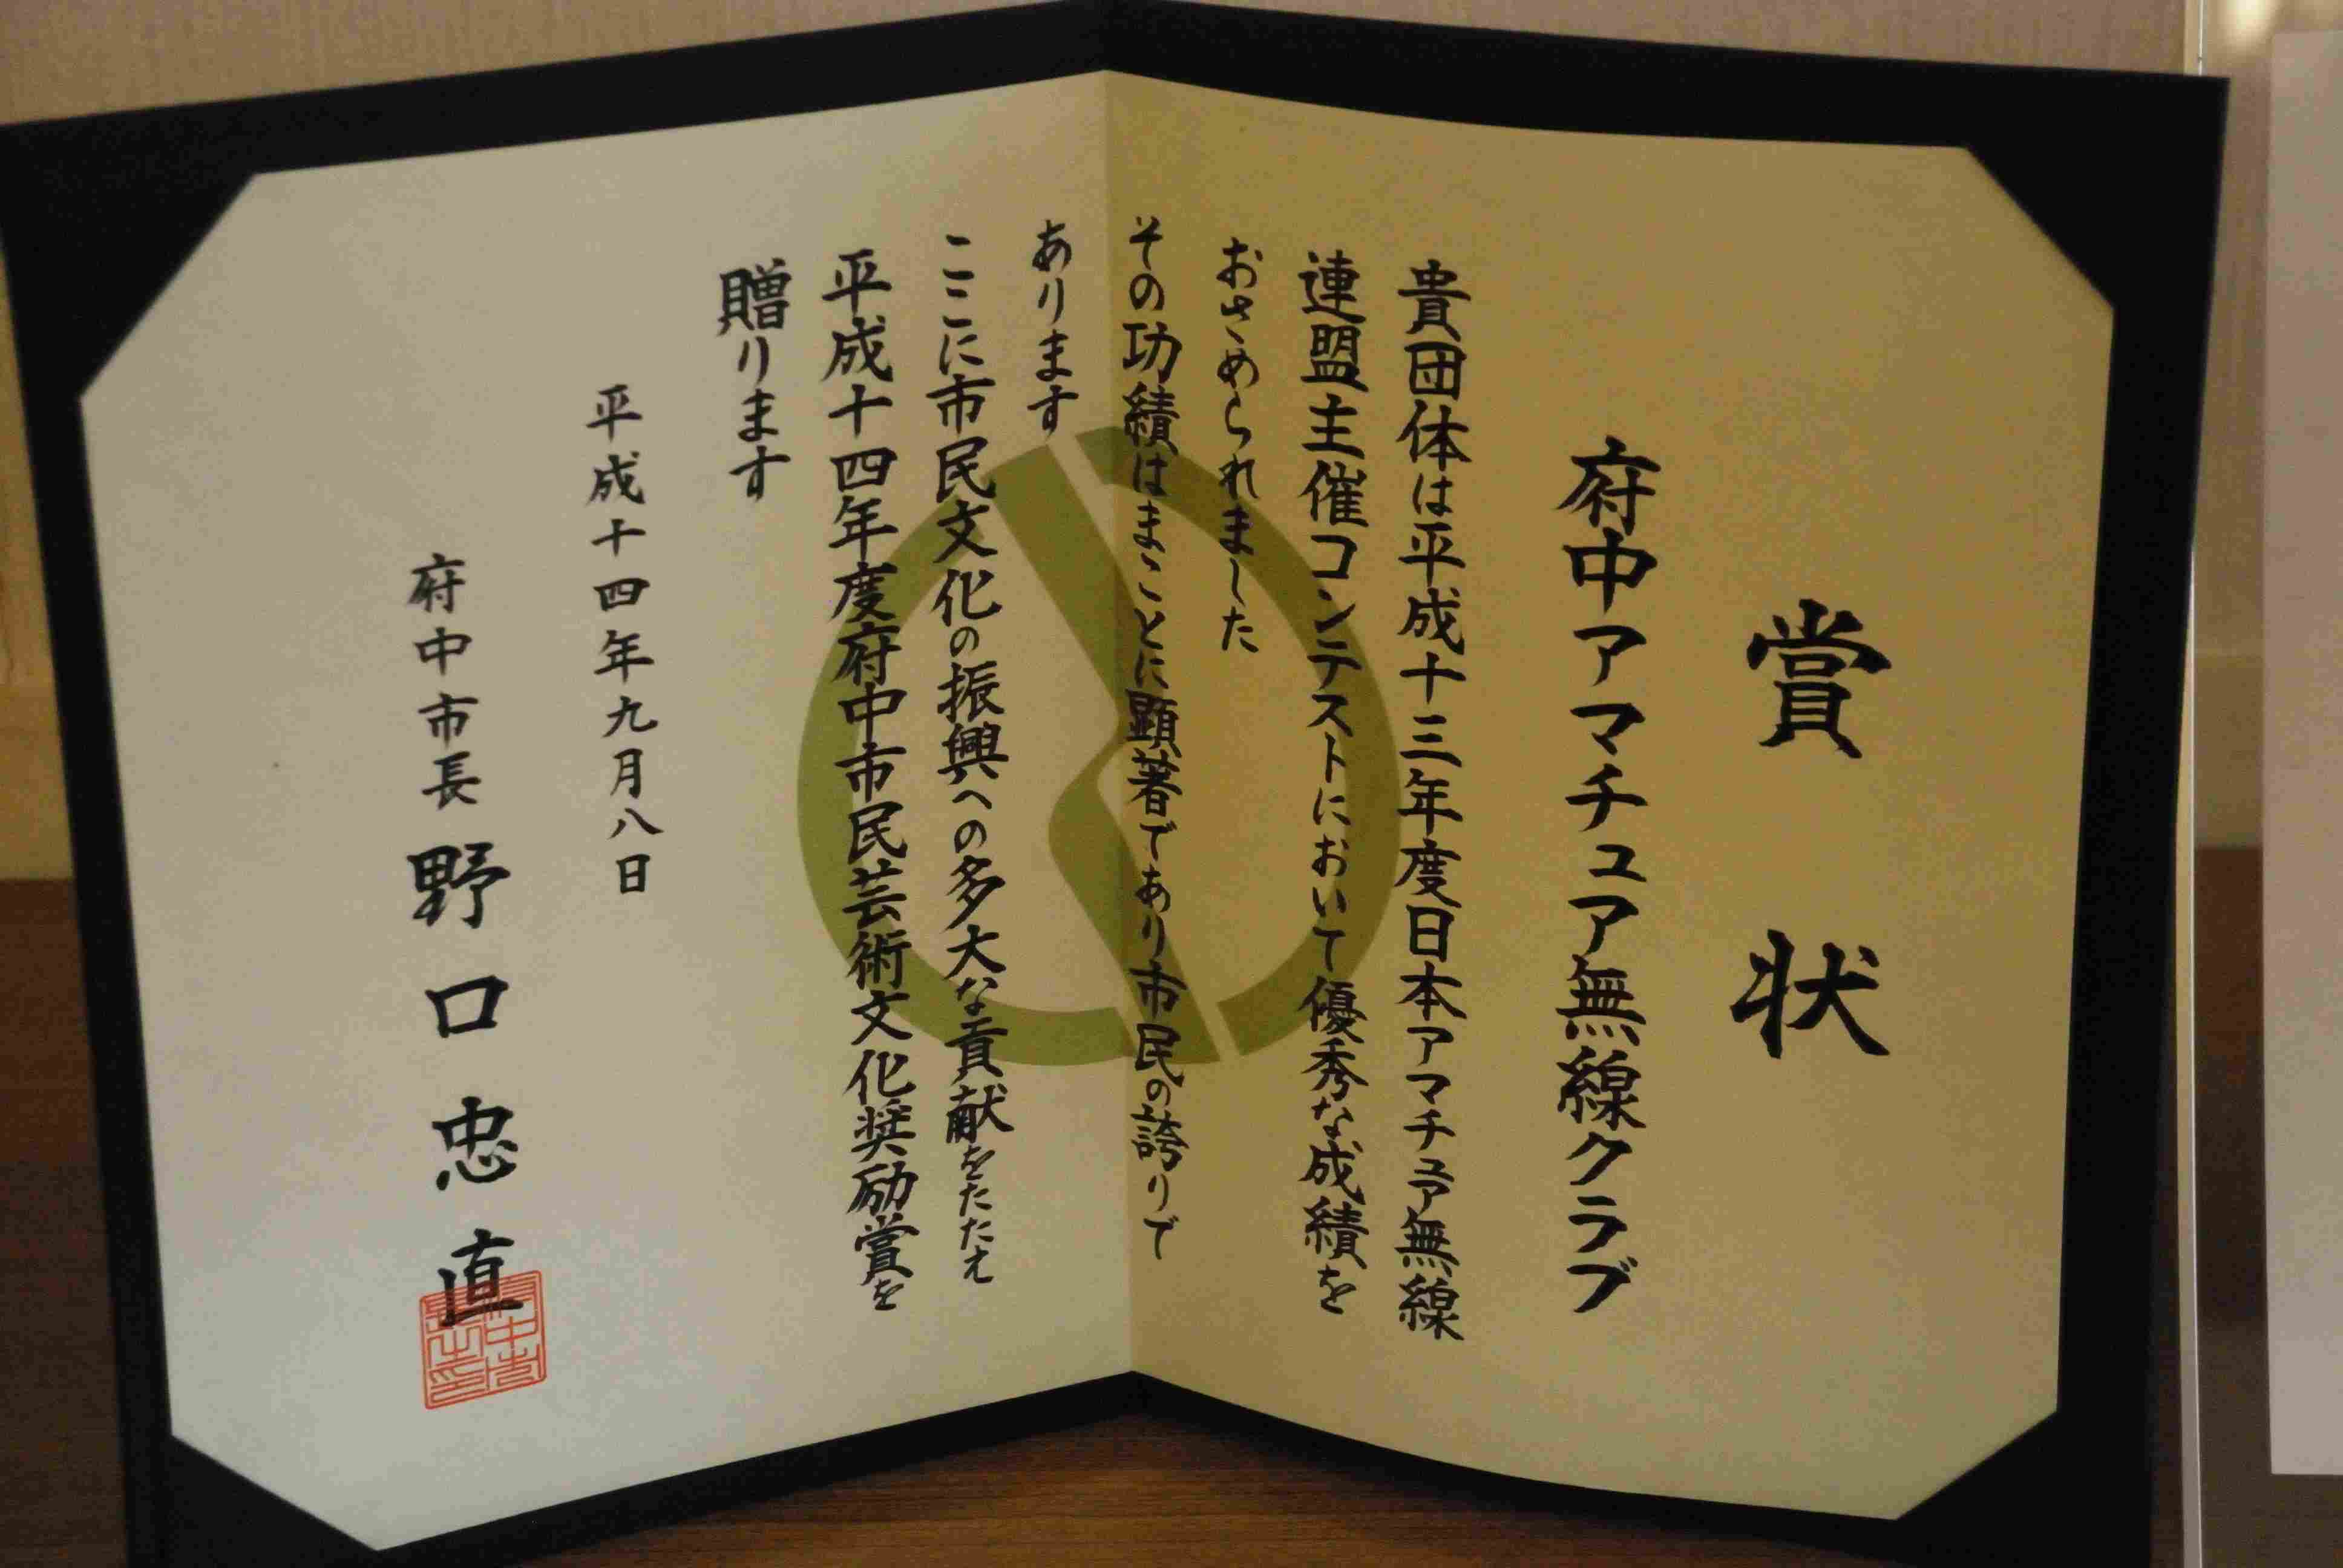 賞状
府中アマチュア無線クラブ
貴団体は平成十三年度日本アマチュア無線
連盟主催コンテストにおいて優秀な成績を
おさめられました
その功績はまことに顕著であり市民の誇りで
あります
ここに市民文化の振興への多大な貢献をたたえ
平成十四年度府中市民芸術文化奨励賞を
贈ります
平成十四年九月八日
府中市長 野口忠直